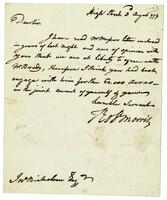 High Street 3d August 1793
Dear Sir
I have read Mr Mifflin's letter inclosed
in yours of last night and am of opinion with
you that we are at liberty to agree with
Mr Brody, therefore I think you had best
engage with him for the 60,000 acres
on the joint account of yourself & yours
humble Servant
Robt Morris
Jno Nicholson Esqr